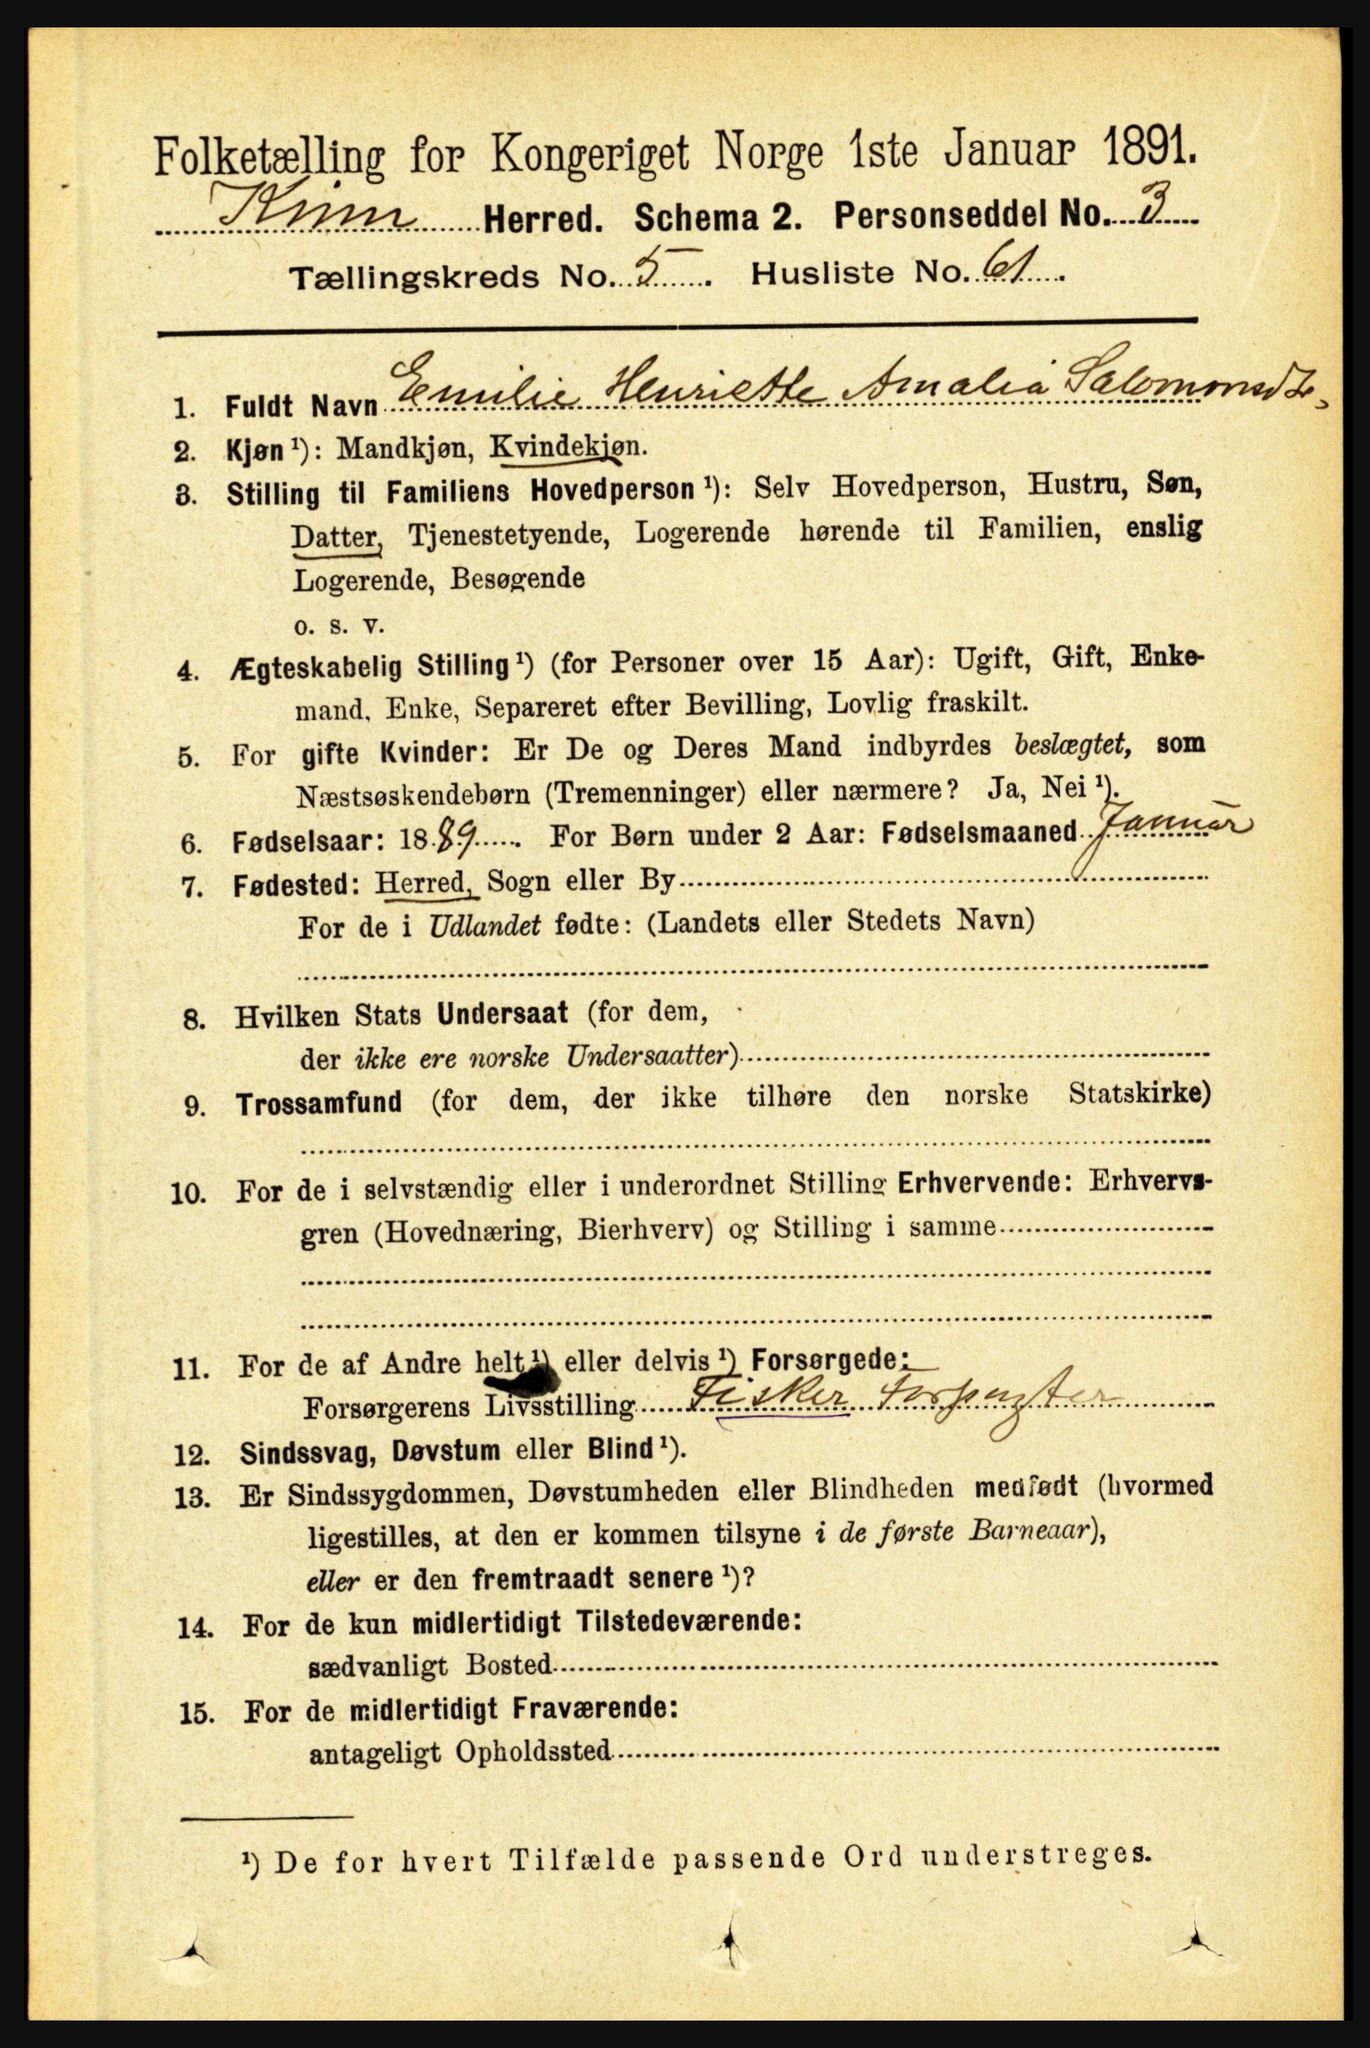 Folketælling for Kongeriget Norge 1ste Januar 1891.
Kinn Herred. Schema 2. Personseddel No. 3
Tællingskreds No. 5. Husliste No. 61.
1. Fuldt Navn Emilie Henriette Amalia Salomonsdtr.
2. Kjøn ¹): Mandkjøn, Kvindekjøn.
3. Stilling til Familiens Hovedperson ¹): Selv Hovedperson, Hustru, Søn,
Datter, Tjenestetyende, Logerende hørende til Familien, enslig
Logerende, Besøgende
o. s. v.
4. Ægteskabelig Stilling ¹) (for Personer over 15 Aar): Ugift, Gift, Enke-
mand, Enke, Separeret efter Bevilling, Lovlig fraskilt.
5. For gifte Kvinder: Er De og Deres Mand indbyrdes beslægtet, som
Næstsøskendebørn (Tremenninger) eller nærmere? Ja, Nei ¹).
6. Fødselsaar: 1889. For Børn under 2 Aar: Fødselsmaaned Januar
7. Fødested: Herred, Sogn eller By
For de i Udlandet fødte: (Landets eller Stedets Navn)
8. Hvilken Stats Undersaat (for dem,
der ikke ere norske Undersaatter)
9. Trossamfund (for dem, der ikke tilhøre den norske Statskirke)
10. For de i selvstændig eller i underordnet Stilling Erhvervende: Erhvervs-
gren (Hovednæring, Bierhverv) og Stilling i samme
11. For de af Andre helt ¹) eller delvis ¹) Forsørgede:
Forsørgerens Livsstilling Fisker Forpagter
12. Sindssvag, Døvstum eller Blind ¹).
13. Er Sindssygdommen, Døvstumheden eller Blindheden medfødt (hvormed
ligestilles, at den er kommen tilsyne i de første Barneaar),
eller er den fremtraadt senere ¹)?
14. For de kun midlertidigt Tilstedeværende:
sædvanligt Bosted
15. For de midlertidigt Fraværende:
antageligt Opholdssted
¹) De for hvert Tilfælde passende Ord understreges.